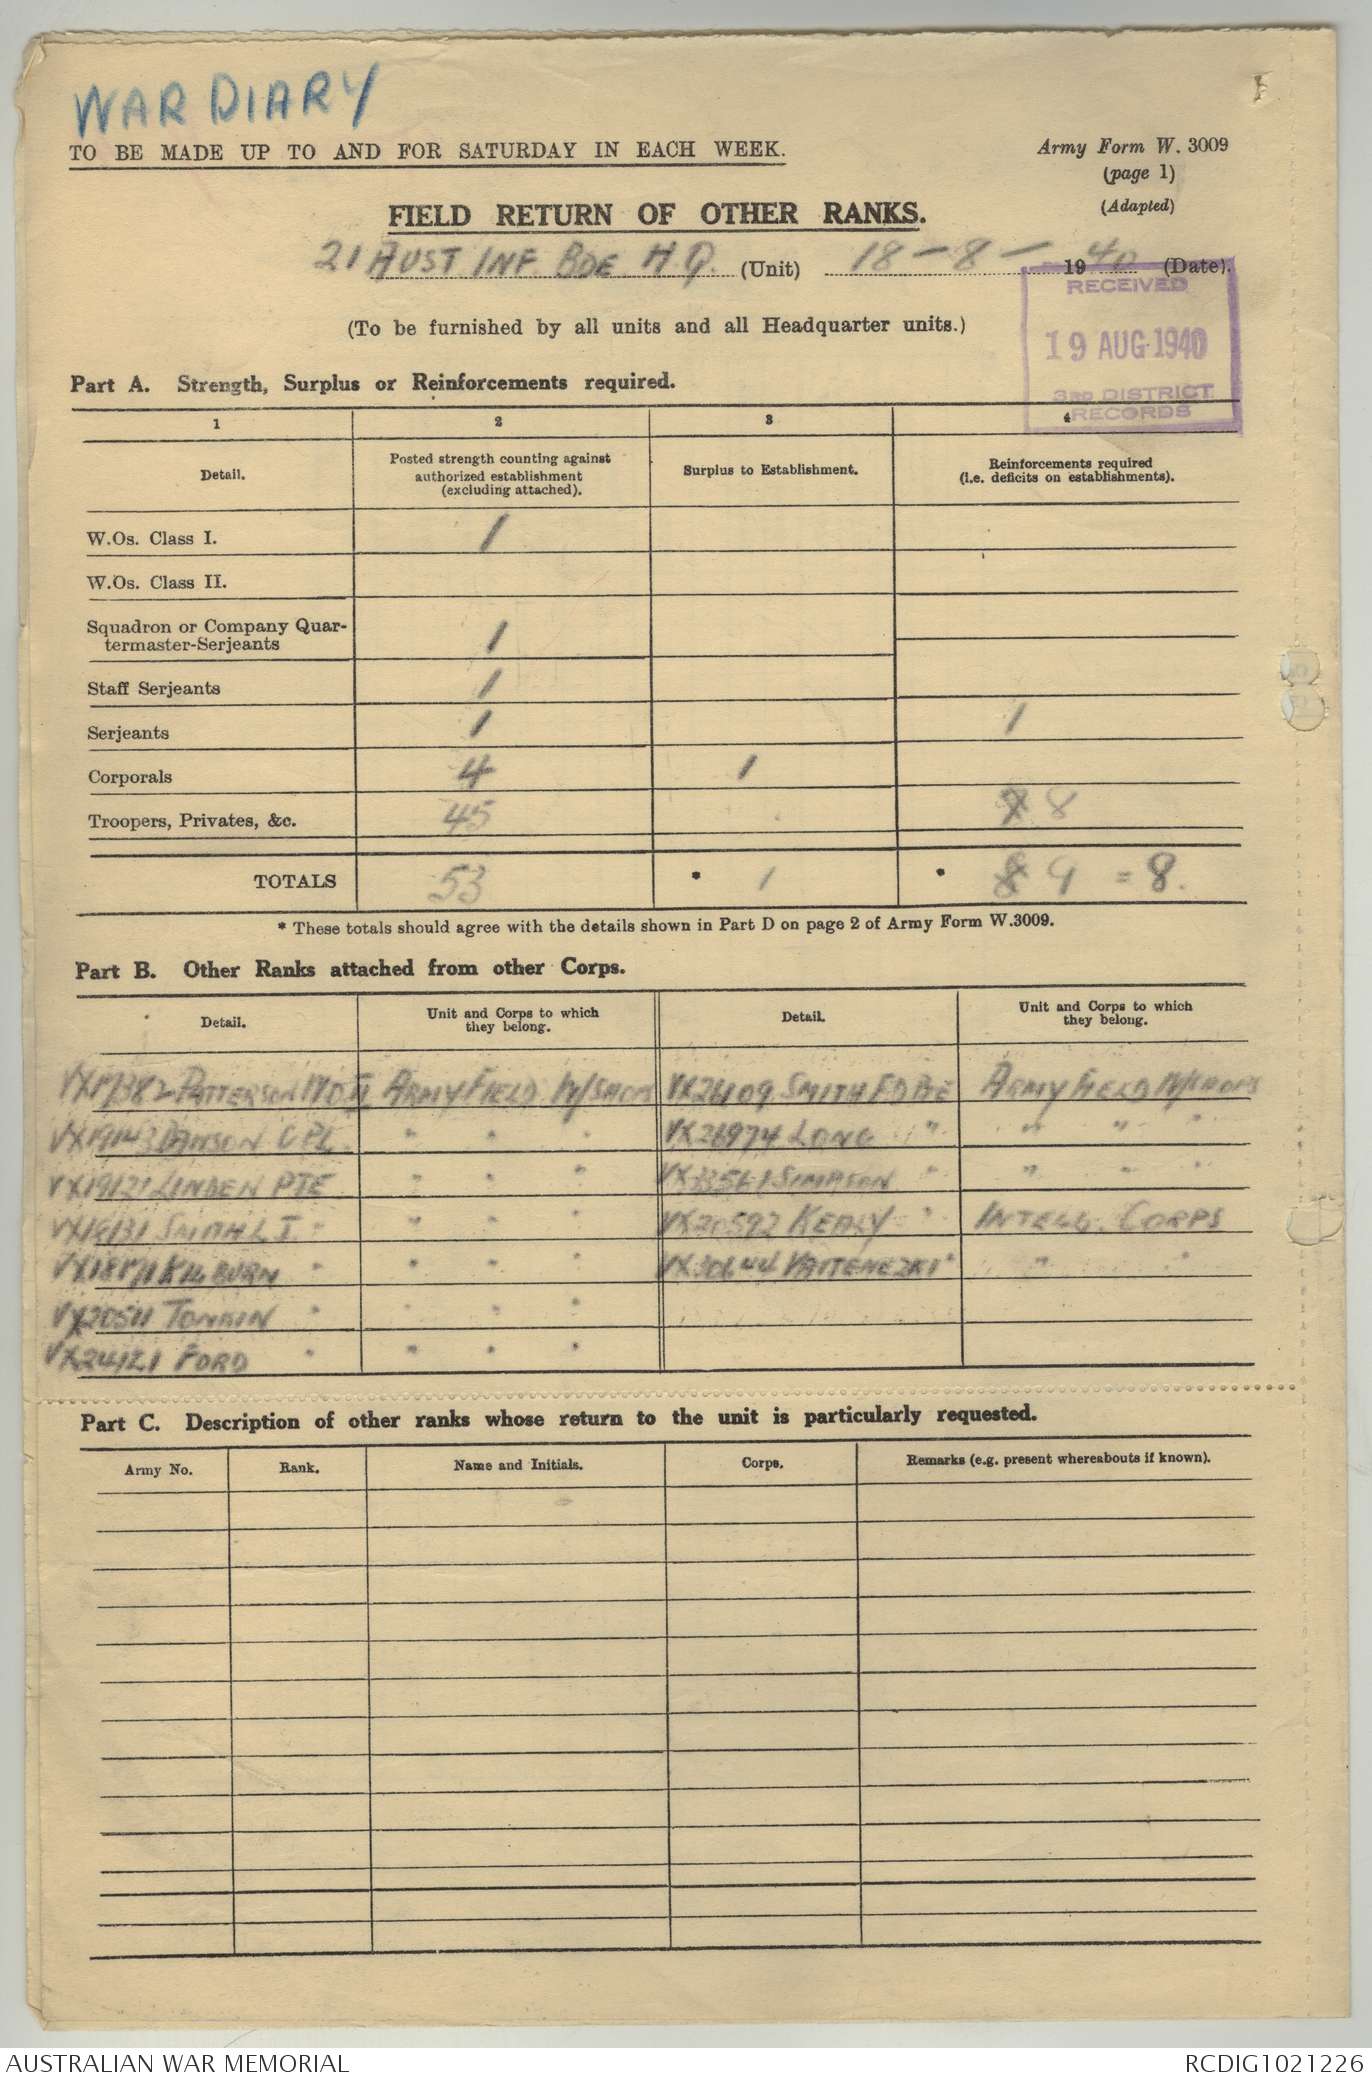 WAR DIARY
TO BE MADE UP TO AND FOR SATURDAY IN EACH WEEK.
Army Form W. 3009
(page 1)
(Adapted)
FIELD RETURN OF OTHER RANKS.
21 AUST INF. BDE H.Q. (Unit) 18 - 8 - 1940 (Date).
(To be furnished by all units and all Headquarter units.)
RECEIVED
19 AUG 1940
3RD DISTRICT
RECORDS
Part A. Strength, Surplus or Reinforcements required.
1 2 3 4
Detail. Posted strength counting against authorized establishment (excluding attached). Surplus to Establishment. Reinforcements required (i.e. deficits on establishments).
W.Os. Class I. 1
W.Os. Class II.
Squadron or Company Quar-
termaster-Serjeants 1
Staff Serjeants 1
Serjeants 1 1
Corporals 4 1
Troopers, Privates, &c. 45 8
TOTALS 53 * 1 * 9 = 8.
* These totals should agree with the details shown in Part D on page 2 of Army Form W.3009.
Part B. Other Ranks attached from other Corps.
Detail. Unit and Corps to which they belong. Detail. Unit and Corps to which they belong.
PATTERSON WO II ARMY FIELD W/SHOPS VX26109 SMITH F D PTE ARMY FIELD W/SHOPS
VX19143 DAWSON CPL. " " " VX26974 LONG " " " "
VX19121 LINDEN PTE " " " VX33561 SIMPSON " " " "
VX19131 SMITH L I " " " " VX20592 KEALY " INTELL. CORPS
KILBURN " " " VX30644 " " "
VX20511 TONKIN " " " "
VX24121 FORD " " " "
Part C. Description of other ranks whose return to the unit is particularly requested.
Army No. Rank. Name and Initials. Corps. Remarks (e.g. present whereabouts if known).
AUSTRALIAN WAR MEMORIAL RCDIG1021226